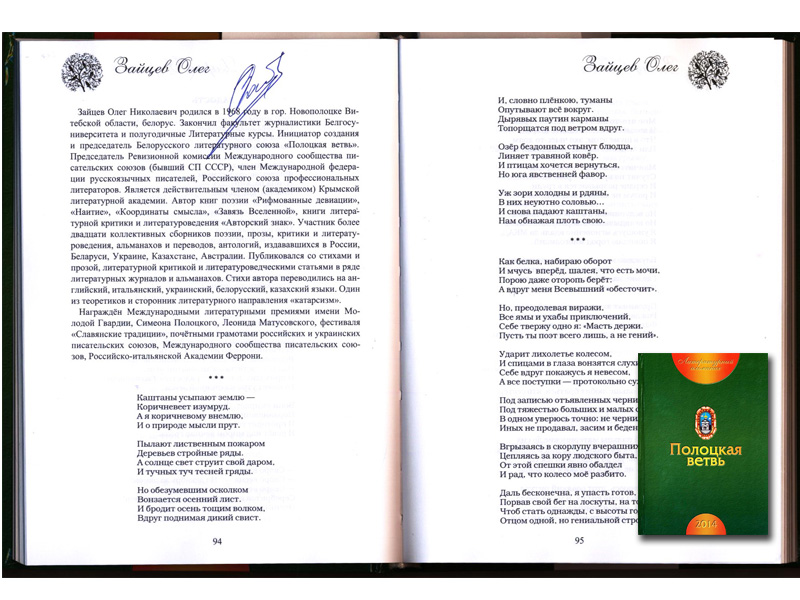 Зайцев Олег
Зайцев Олег Николаевич родился в 1968 году в гор. Новополоцке Ви-
тебской области, белорус. Закончил факультет журналистики Белгосу-
ниверситета и полугодичные Литературные курсы. Инициатор создания
и председатель Белорусского литературного союза «Полоцкая ветвь».
Председатель Ревизионной комиссии Международного сообщества пи-
сательских союзов (бывший СП СССР), член Международной федера-
ции русскоязычных писателей, Российского союза профессиональных
литераторов. Является действительным членом (академиком) Крымской
литературной академии. Автор книг поэзии «Рифмованные девиации»,
«Наитие», «Координаты смысла», «Завязь Вселенной», книги литера-
турной критики и литературоведения «Авторский знак». Участник более
двадцати коллективных сборников поэзии, прозы, критики и литерату-
роведения, альманахов и переводов, антологий, издававшихся в России,
Беларуси, Украине, Казахстане, Австралии. Публиковался со стихами и
прозой, литературной критикой и литературоведческими статьями в ряде
литературных журналов и альманахов. Стихи автора переводились на ан-
глийский, итальянский, украинский, белорусский, казахский языки. Один
из теоретиков и сторонник литературного направления «катарсизм».
Награждён Международными литературными премиями имени Мо-
лодой Гвардии, Симеона Полоцкого, Леонида Матусовского, фестиваля
«Славянские традиции», почётными грамотами российских и украинских
писательских союзов, Международного сообщества писательских сою-
зов, Российско-итальянской Академии Феррони.
***
Каштаны усыпают землю —
Коричневеет изумруд.
А я коричневому внемлю,
И о природе мысли прут.
Пылают лиственным пожаром
Деревьев стройные ряды.
А солнце свет струит свой даром,
И тучных туч тесней гряды.
Но обезумевшим осколком
Вонзается осенний лист.
И бродит осень тощим волком,
Вдруг поднимая дикий свист.
94
Зайцев Олег
И, словно плёнкою, туманы
Опутывают всё вокруг.
Дырявых паутин карманы
Топорщатся под ветром вдруг.
Озёр бездонных стынут блюдца,
Линяет травяной ковёр.
И птицам хочется вернуться,
Но юга явственней фавор.
Уж зори холодны и рдяны,
В них неуютно соловью...
И снова падают каштаны,
Нам обнажая плоть свою.
***
Как белка, набираю оборот
И мчусь вперёд, шалея, что есть мочи,
Порою даже оторопь берёт:
А вдруг меня Всевышний «обесточит».
Но, преодолевая виражи,
Все ямы и ухабы приключений,
Себе твержу одно я: «Масть держи.
Пусть ты поэт всего лишь, а не гений».
Ударит лихолетье колесом,
И спицами в глаза вонзятся
Себе вдруг покажусь я невесом,
А все поступки — протокольно
Под записью отъявленных
Под тяжестью больших и малых
В одном уверюсь точно: не
Иных не продавал, засим и
Вгрызаясь в скорлупу
Цепляясь за кору людского быта,
От этой спешки явно обалдел
И рад, что колесо моё разбито.
Даль бесконечна, я упасть готов,
Порвав свой бег на лоскуты, на
Чтоб стать однажды, с высоты
Отцом одной, но гениальной
95
Полоцкая
ветвь
2014